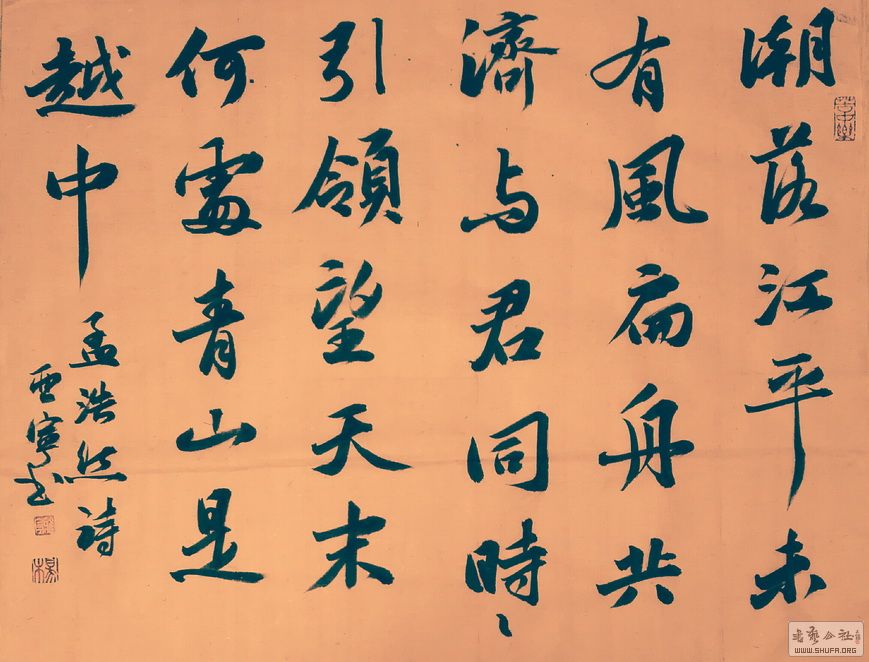 潮落江平未
有風扁舟共
濟与君同時〻
引領望天末
何處青山是
越中
孟浩然詩
雲寧书
书艺公社
WWW.SHUFA.ORG